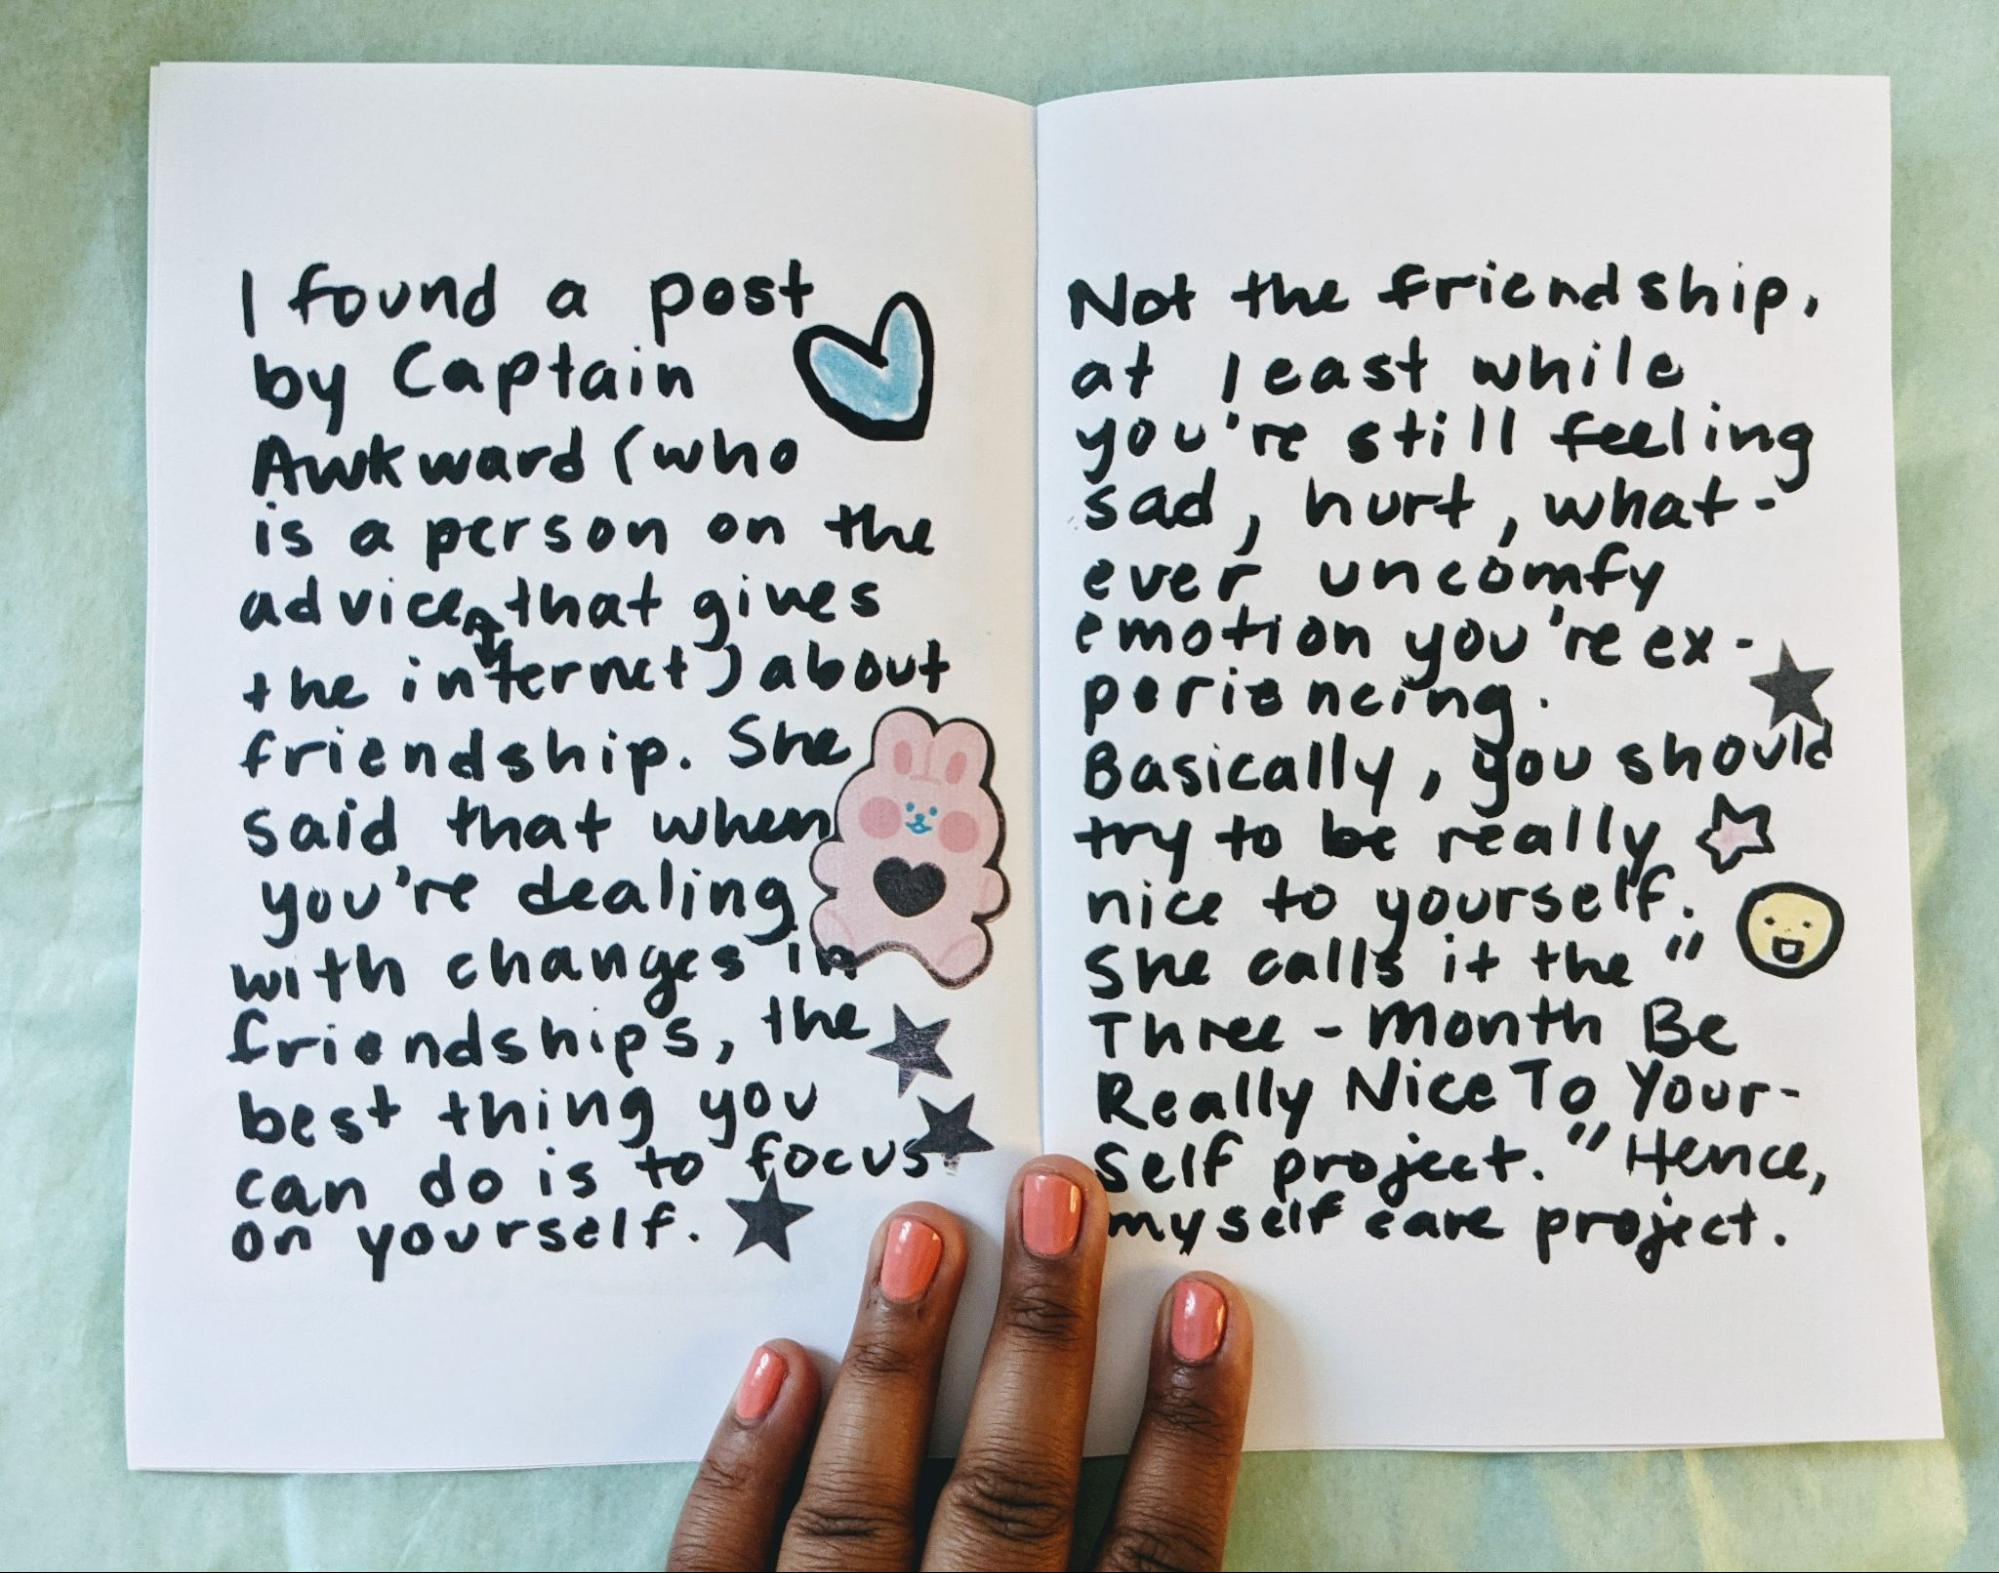 I found a post
by Captain
Awkward (who
is a person on the
advice that gives
the internet) about
friendship. She
said that when
you're dealing
with changes in
friendships, the
best thing you
can do is to focus
on yourself.
Not the friendship,
at least while
you're still feeling
sad, hurt, what-
ever uncomfy
emotion you're ex-
periencing.
Basically, you should
try to be really
nice to yourself.
She calls it the "
Three-Month Be
Really Nice To Your-
self project." Hence,
my self care project.